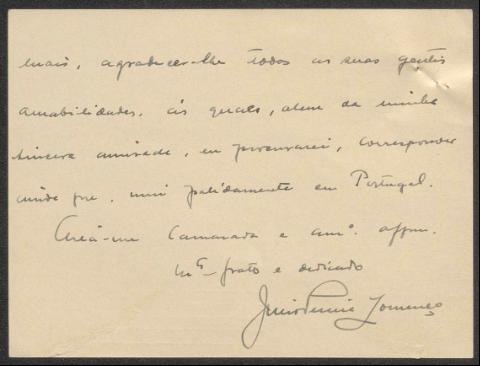 mais, agradecer-lhe todas as suas gentis
amabilidades, ás quaes, alem da minha
sincera amisade, eu procurarei, corresponder
ainda que, mui palidamente em Portugal.
Creā-me Camarada e amº. affm.
Mᵗᵒ grato e dedicado
Lourenço